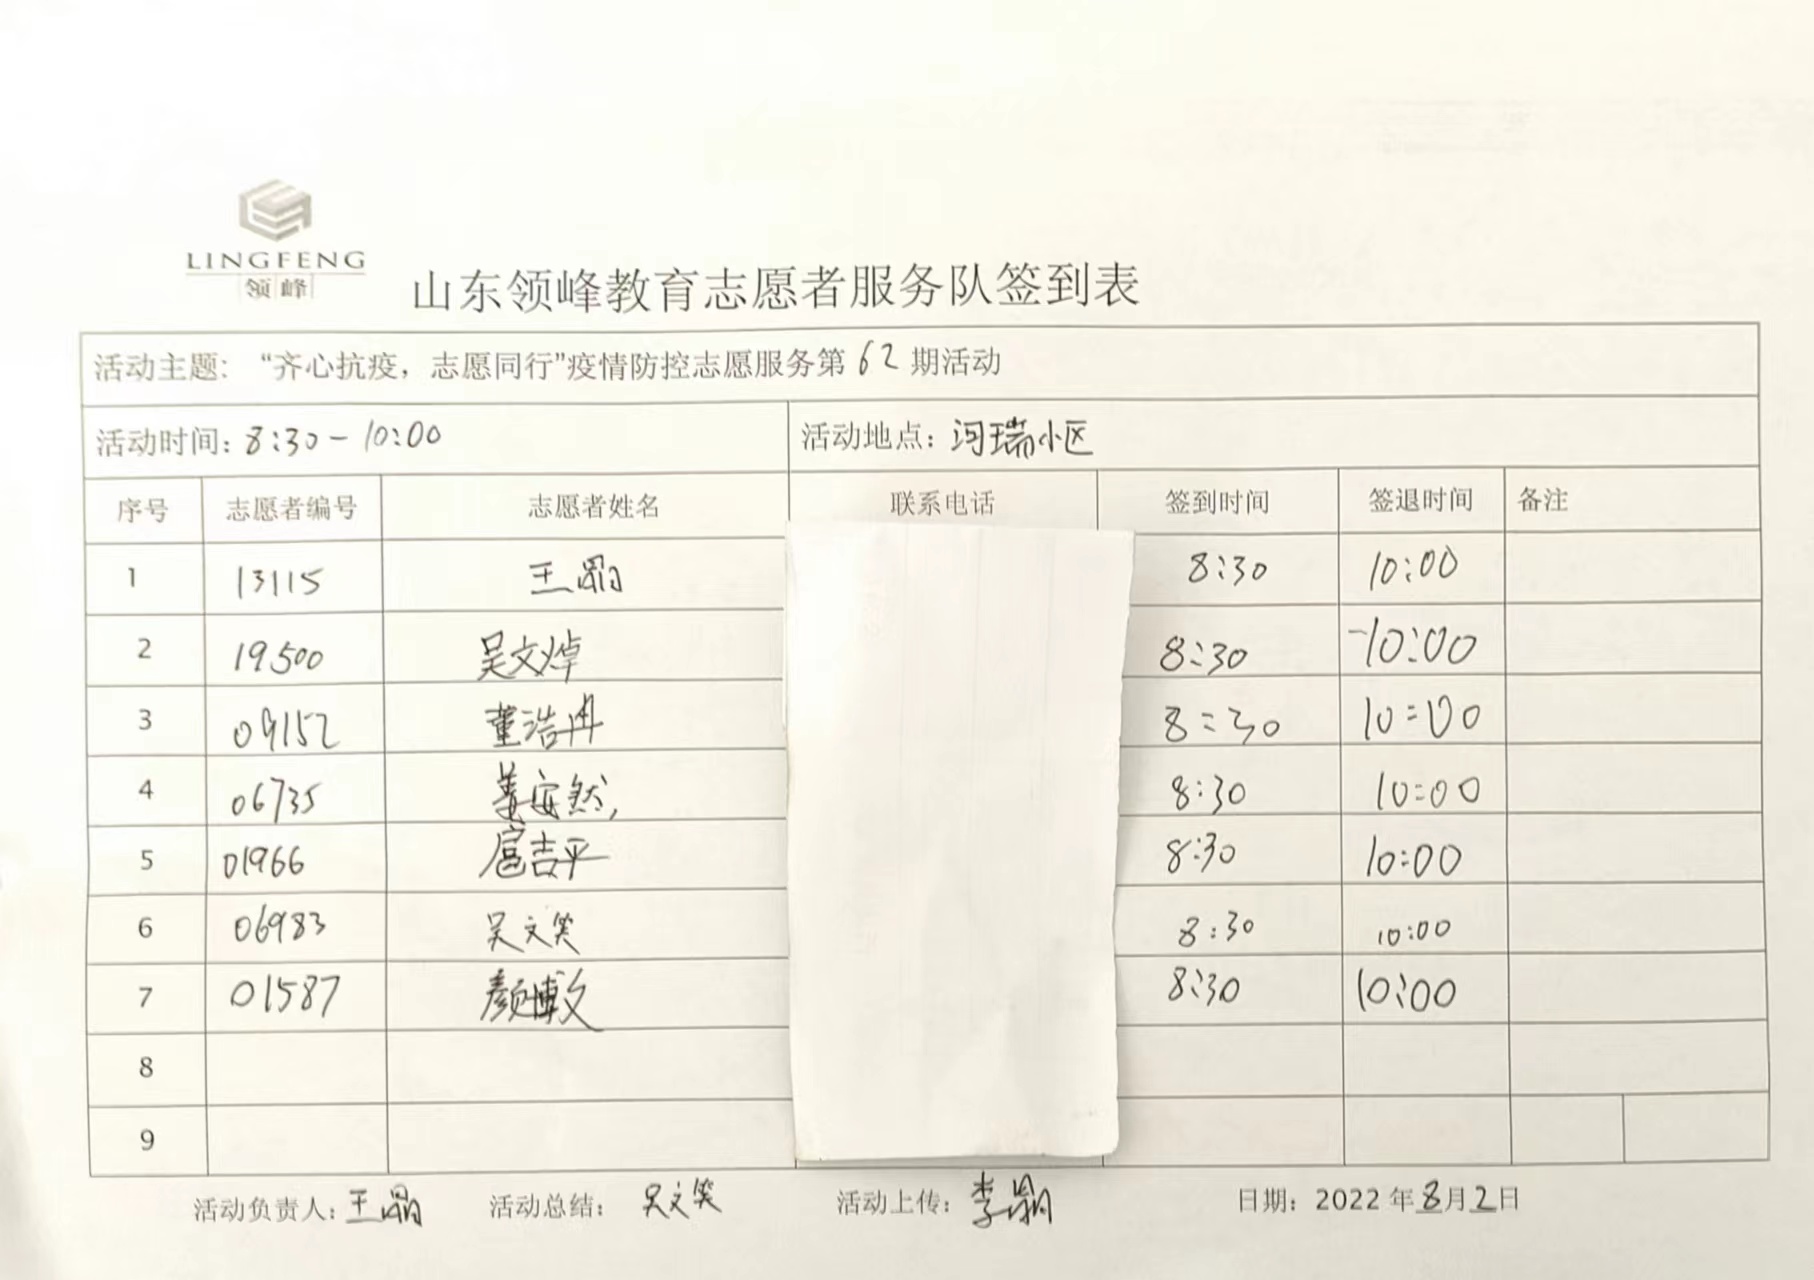 LINGFENG
领峰
山东领峰教育志愿者服务队签到表
活动主题: “齐心抗疫，志愿同行”疫情防控志愿服务第62期活动
活动时间: 8:30-10:00 活动地点: 河瑞小区
序号 志愿者编号 志愿者姓名 联系电话 签到时间 签退时间 备注
1 13115 王 8:30 10:00
2 19500 吴文焯 8:30 10:00
3 09152 董浩冉 8:30 10:00
4 06735 姜安然 8:30 10:00
5 01966 扈吉平 8:30 10:00
6 06983 吴文笑 8:30 10:00
7 01587 颜博文 8:30 10:00
8
9
活动负责人: 王 活动总结: 吴文笑 活动上传: 李 日期: 2022年8月2日